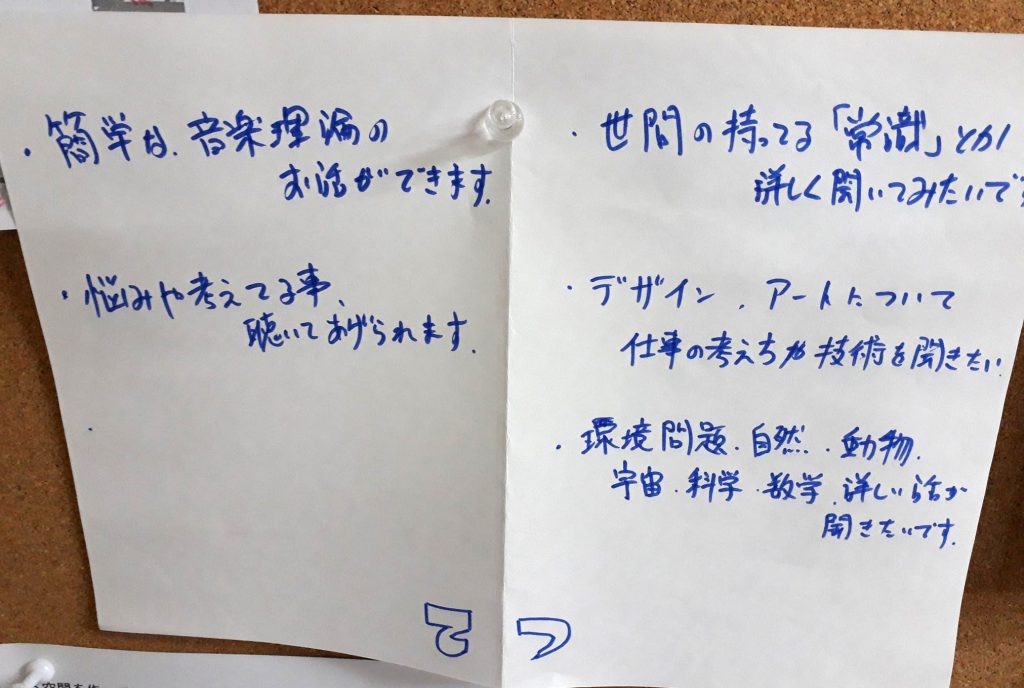 ・簡単な、音楽理論の
お話ができます。
・悩みや考えてる事、
聴いてあげられます。
・
て
・世間の持ってる「常識」とか
詳しく聞いてみたいです
・デザイン、アートについて
仕事の考え方や技術を聞きたい
・環境問題・自然・動物・
宇宙・科学・数学、詳しい話が
聞きたいです。
つ
空間を